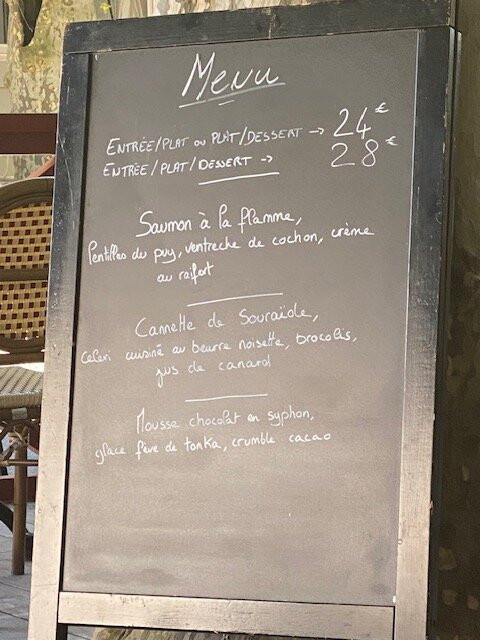 Menu
ENTRÉE/PLAT OU PLAT/DESSERT → 24€
ENTRÉE/PLAT/DESSERT → 28€
Saumon à la flamme,
lentilles du puy, ventreche de cochon, crème
au raifort
Cannette de Souraïde,
celeri cuisiné au beurre noisette, brocolis,
jus de canard
Mousse chocolat en syphon,
glace fève de tonka, crumble cacao